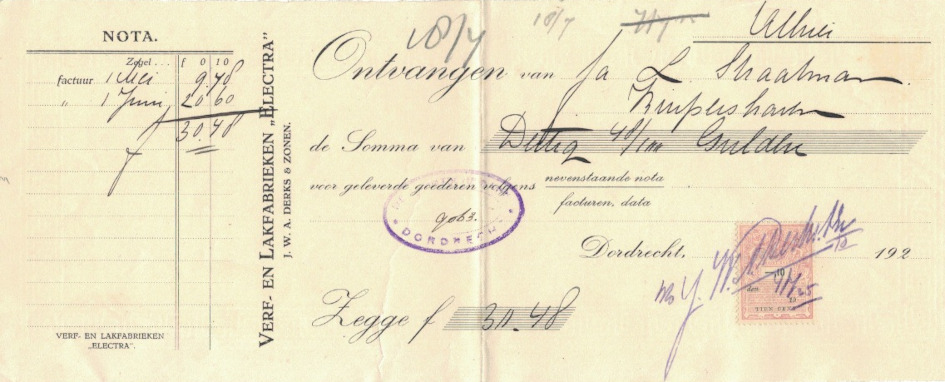 NOTA.
Zegel.... f 0 10
factuur 1 Mei 9.78
" 1 Juni 20.60
30.48
VERF- EN LAKFABRIEKEN
„ELECTRA”.
VERF- EN LAKFABRIEKEN „ELECTRA”
J. W. A. DERKS & ZONEN.
18/7
18/7
Alhier
Ontvangen van fa L. Straatman
de Somma van Dertig 48/100 Gulden
voor geleverde goederen volgens nevenstaande nota
facturen, data
9063.
DORDRECHT
Dordrecht, 192
10
den
19
TIEN CENT
Zegge f 30.48